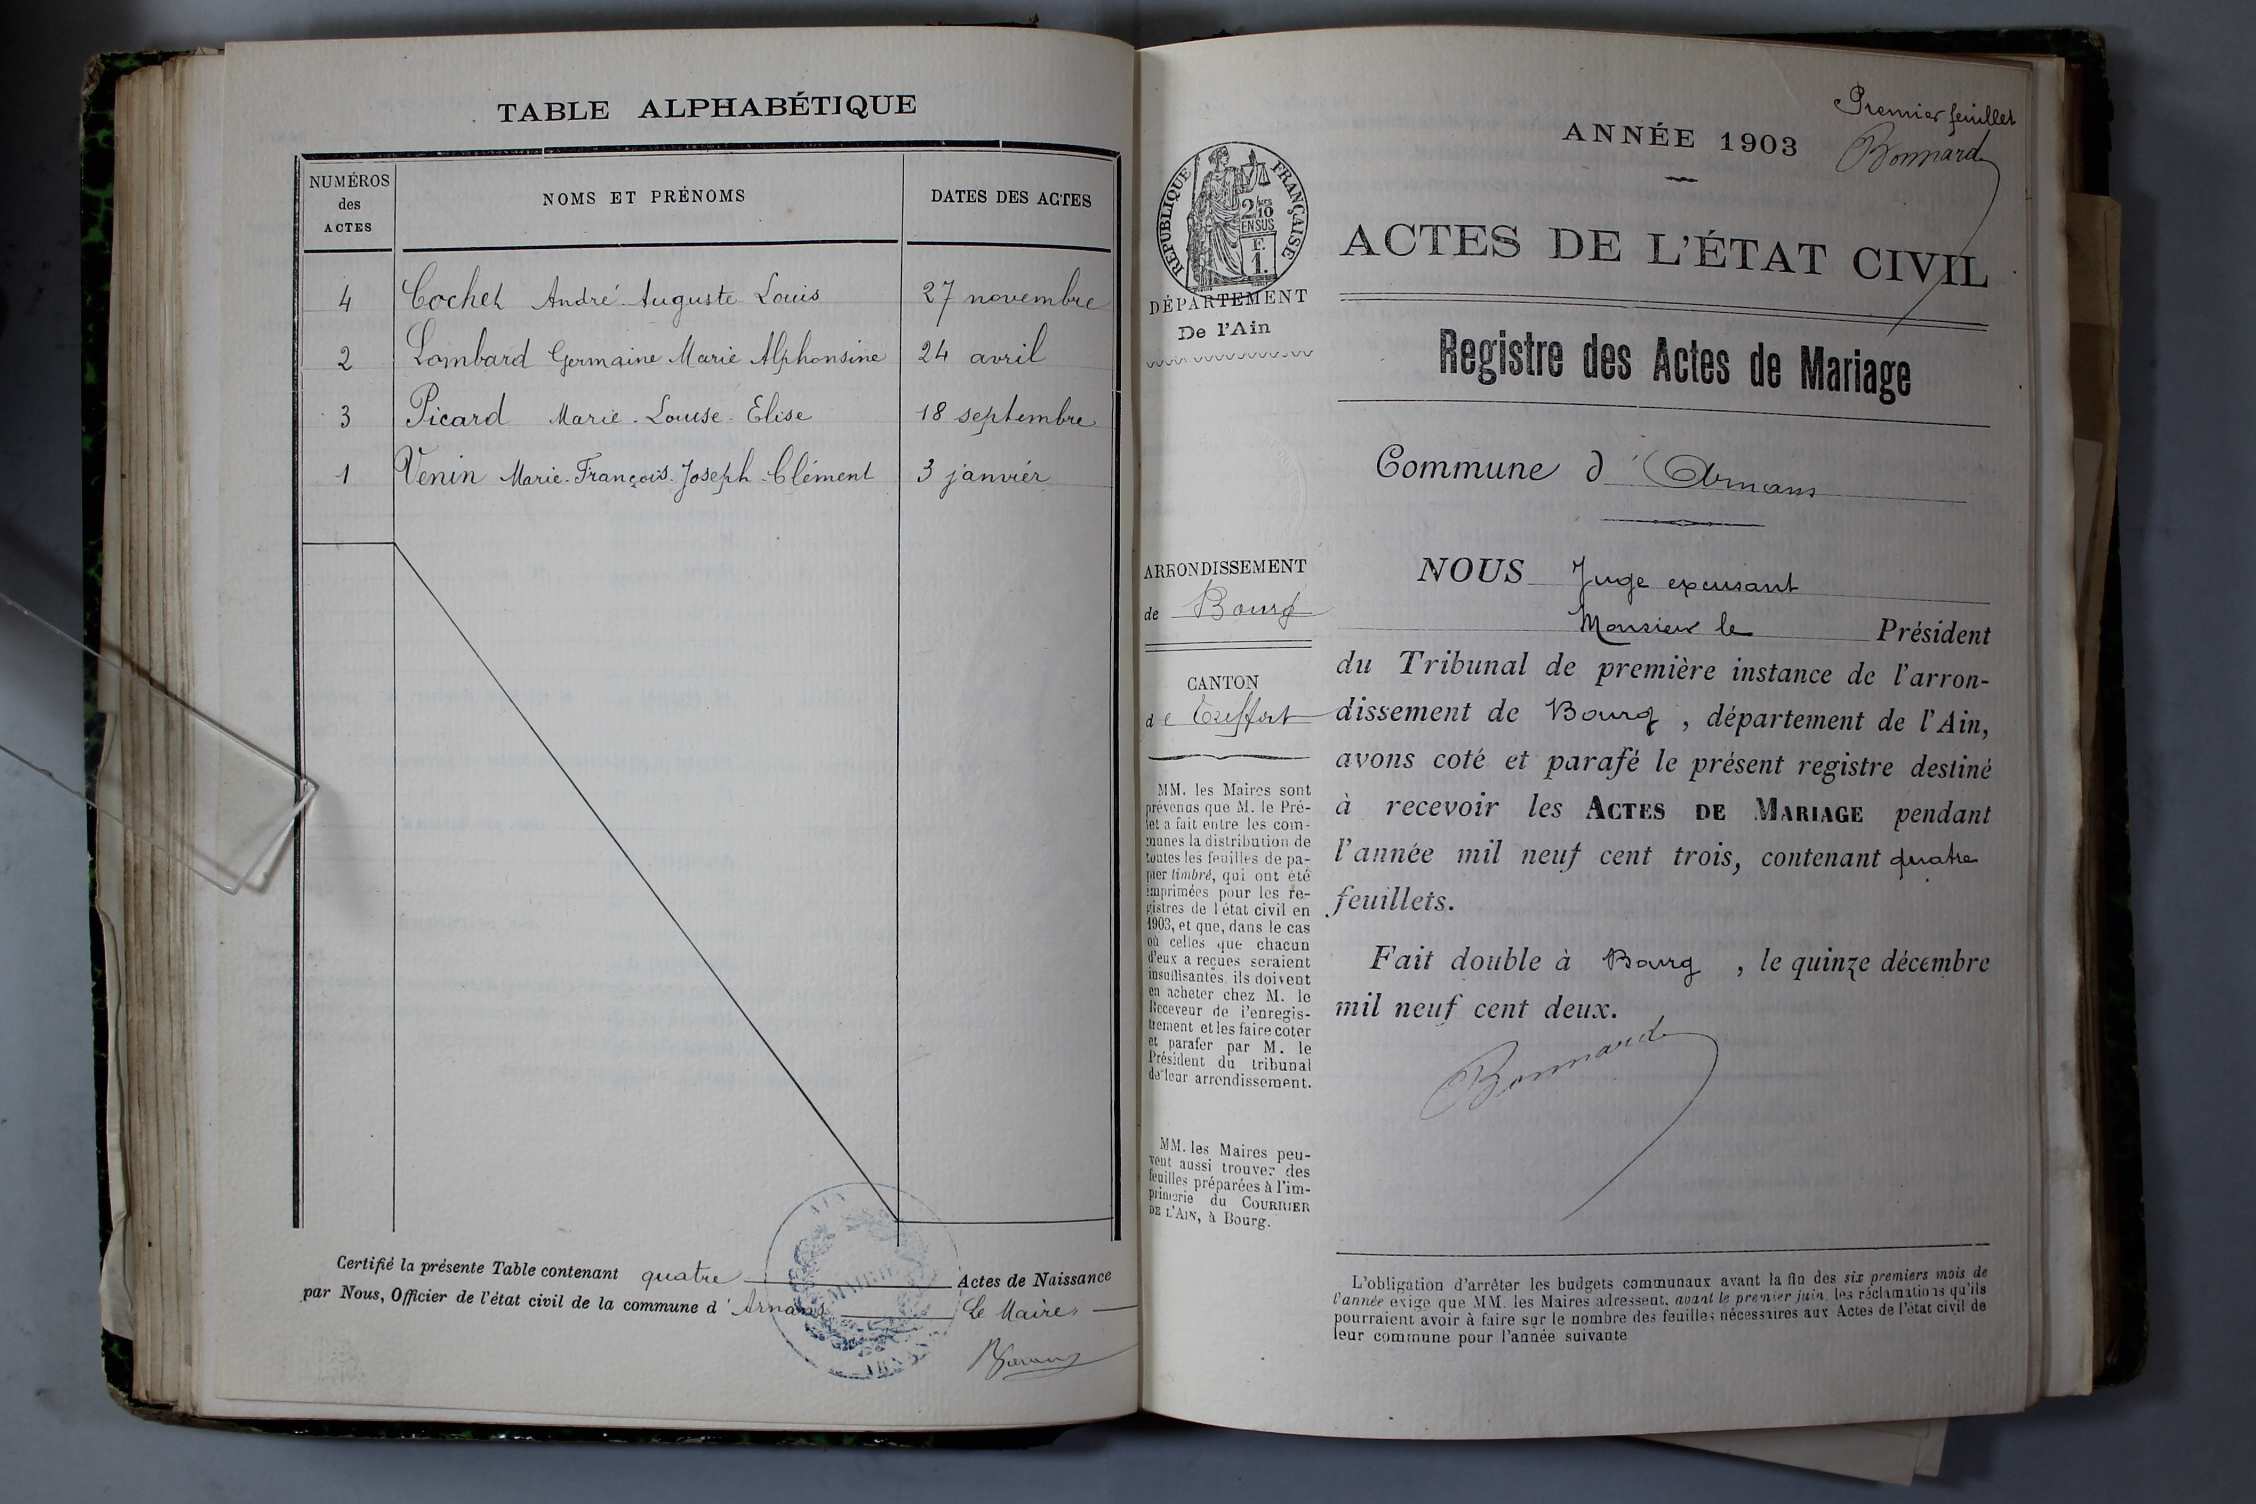 TABLE ALPHABÉTIQUE
NUMÉROS des ACTES
NOMS ET PRÉNOMS
DATES DES ACTES
4 Cochet André Auguste Louis 27 novembre
2 Lombard Germaine Marie Alphonsine 24 avril
3 Picard Marie-Louise-Elise 18 septembre
1 Venin Marie-François-Joseph-Clément 3 janvier
Certifié la présente Table contenant quatre Actes de Naissance
par Nous, Officier de l'état civil de la commune d'Arnans Le Maire
MAIRIE
AIN
Premier feuillet
Bonnard
ANNÉE 1903
RÉPUBLIQUE FRANÇAISE
2/10
EN SUS
F.
1.
ACTES DE L'ÉTAT CIVIL
DÉPARTEMENT
De l'Ain
Registre des Actes de Mariage
Commune d'Arnans
ARRONDISSEMENT
de Bourg
CANTON
de Treffort
MM. les Maires sont
prévenus que M. le Pré-
fet a fait entre les com-
munes la distribution de
toutes les feuilles de pa-
pier timbré, qui ont été
imprimées pour les re-
gistres de l'état civil en
1903, et que, dans le cas
où celles que chacun
d'eux a reçues seraient
insuffisantes, ils doivent
en acheter chez M. le
Receveur de l'enregis-
trement et les faire coter
et parafer par M. le
Président du tribunal
de leur arrondissement.
MM. les Maires peu-
vent aussi trouver des
feuilles préparées à l'im-
primerie du COURRIER
DE L'AIN, à Bourg.
NOUS Juge excusant
Monsieur le Président
du Tribunal de première instance de l'arron-
dissement de Bourg, département de l'Ain,
avons coté et parafé le présent registre destiné
à recevoir les ACTES DE MARIAGE pendant
l'année mil neuf cent trois, contenant quatre
feuillets.
Fait double à Bourg, le quinze décembre
mil neuf cent deux.
Bonnard
L'obligation d'arrêter les budgets communaux avant la fin des six premiers mois de
l'année exige que MM. les Maires adressent, avant le premier juin, les réclamations qu'ils
pourraient avoir à faire sur le nombre des feuilles nécessaires aux Actes de l'état civil de
leur commune pour l'année suivante